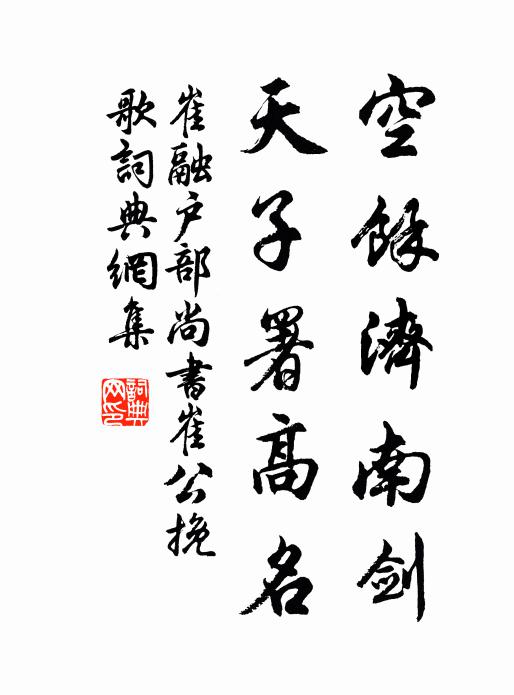 空餘濟南剑
天子署高名
崔融户部尚書崔公挽
歌詞典網集
詞典网印